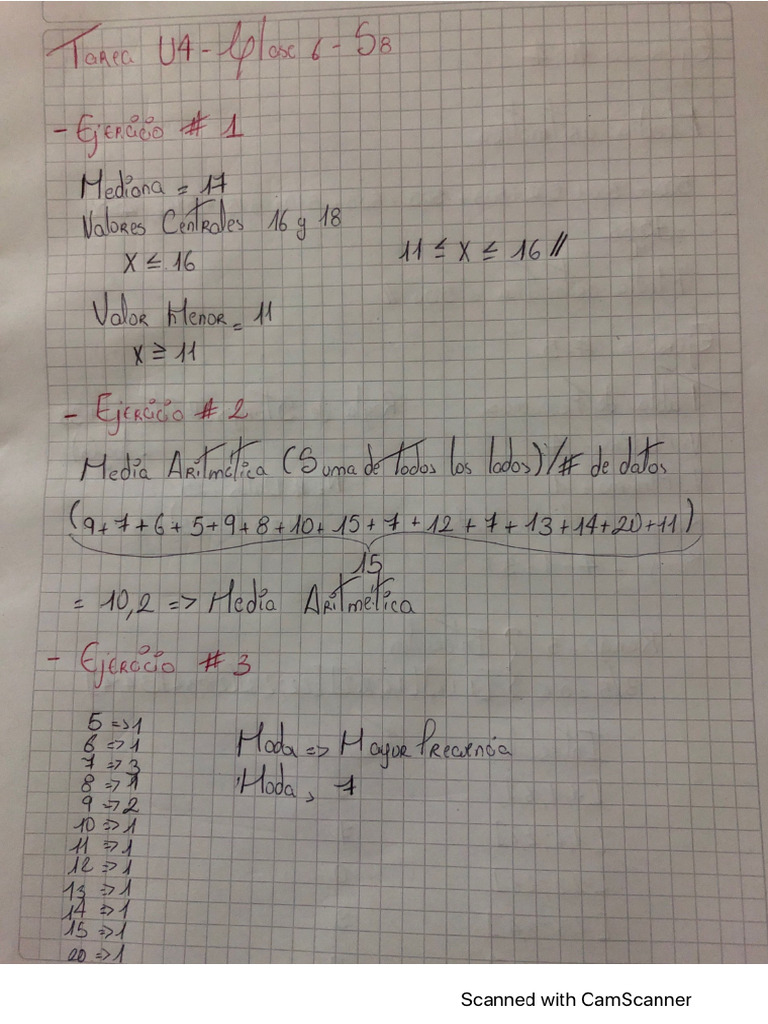 Tarea U4 - Clase 6 - S8
- Ejercicio # 1
Mediana = 17
Valores Centrales 16 y 18
x ≤ 16
11 ≤ x ≤ 16 //
Valor Menor = 11
x ≥ 11
- Ejercicio # 2
Media Aritmética (Suma de todos los lados) / # de datos
(9+7+6+5+9+8+10+15+7+12+7+13+14+20+11)
15
= 10,2 => Media Aritmética
- Ejercicio # 3
5 => 1
6 => 1
7 => 3
8 => 1
9 => 2
10 => 1
11 => 1
12 => 1
13 => 1
14 => 1
15 => 1
20 => 1
Moda => Mayor Frecuencia
Moda, 7
Scanned with CamScanner